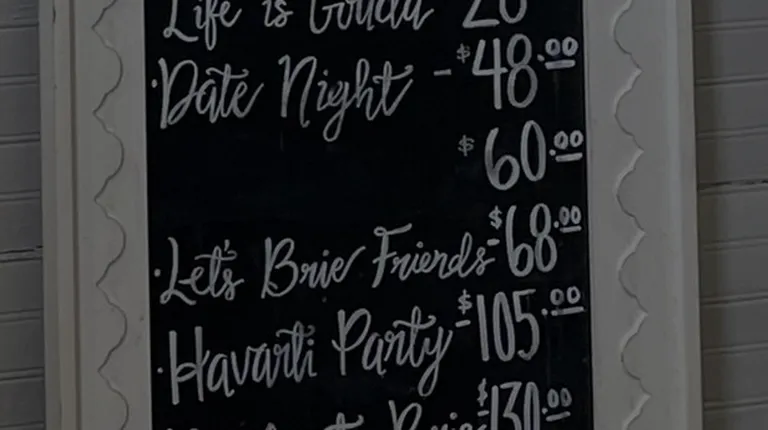 Life is Gouda 26
·Date Night - $48.00
$60.00
·Let's Brie Friends - $68.00
·Havarti Party - $105.00
$130.00